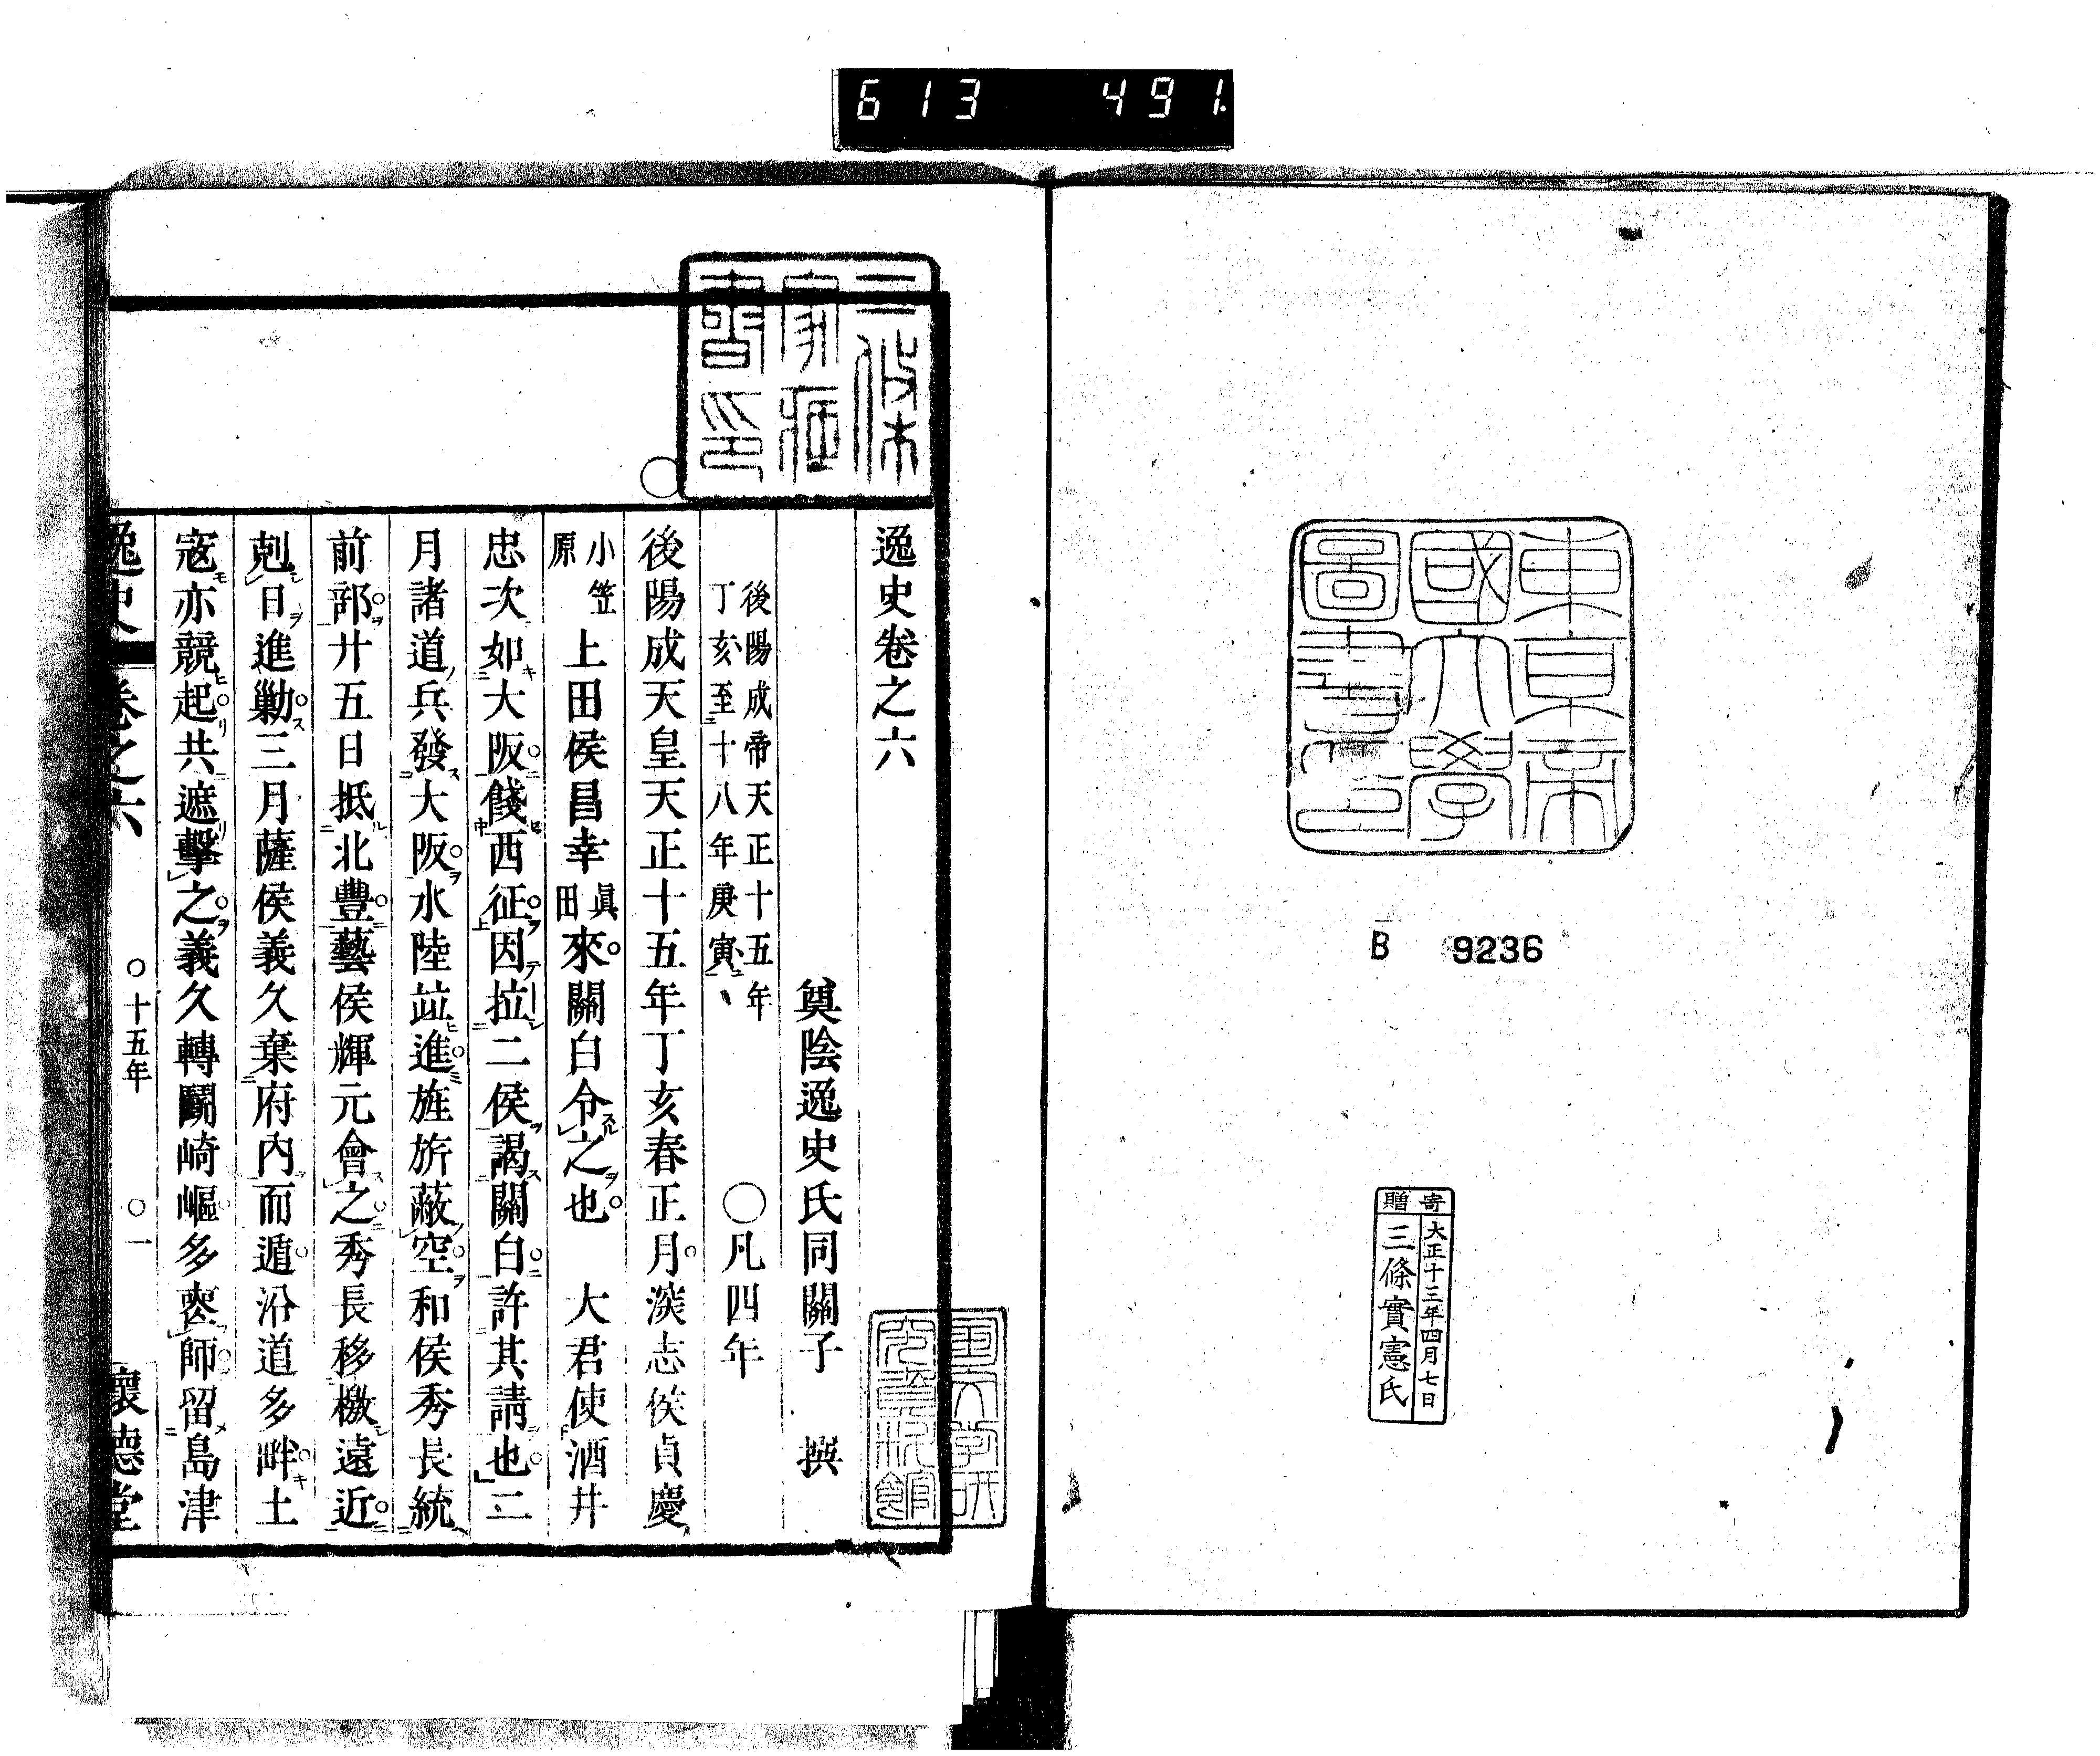 613 491.
東京帝
國大學
圖書印
B 9236
寄贈
大正十三年四月七日
三條實憲氏
三條
家藏
書印
逸史卷之六
奠陰逸史氏同關子 撰
後陽成帝天正十五年
丁亥至十八年庚寅
○凡四年
後陽成天皇天正十五年丁亥春正月深志侯貞慶
小笠原上田侯昌幸眞田來關白令之也 大君使酒井
忠次如大阪餞西征因拉二侯謁關白許其請也二
月諸道兵發大阪水陸竝進旌旂蔽空和侯秀長統
前部廿五日抵北豐藝侯輝元會之秀長移檄遠近
剋日進勦三月薩侯義久棄府內而遁沿道多畔土
寇亦競起共遮擊之義久轉鬭崎嶇多喪師留島津
逸史 卷之六 ○十五年 ○一 懷德堂